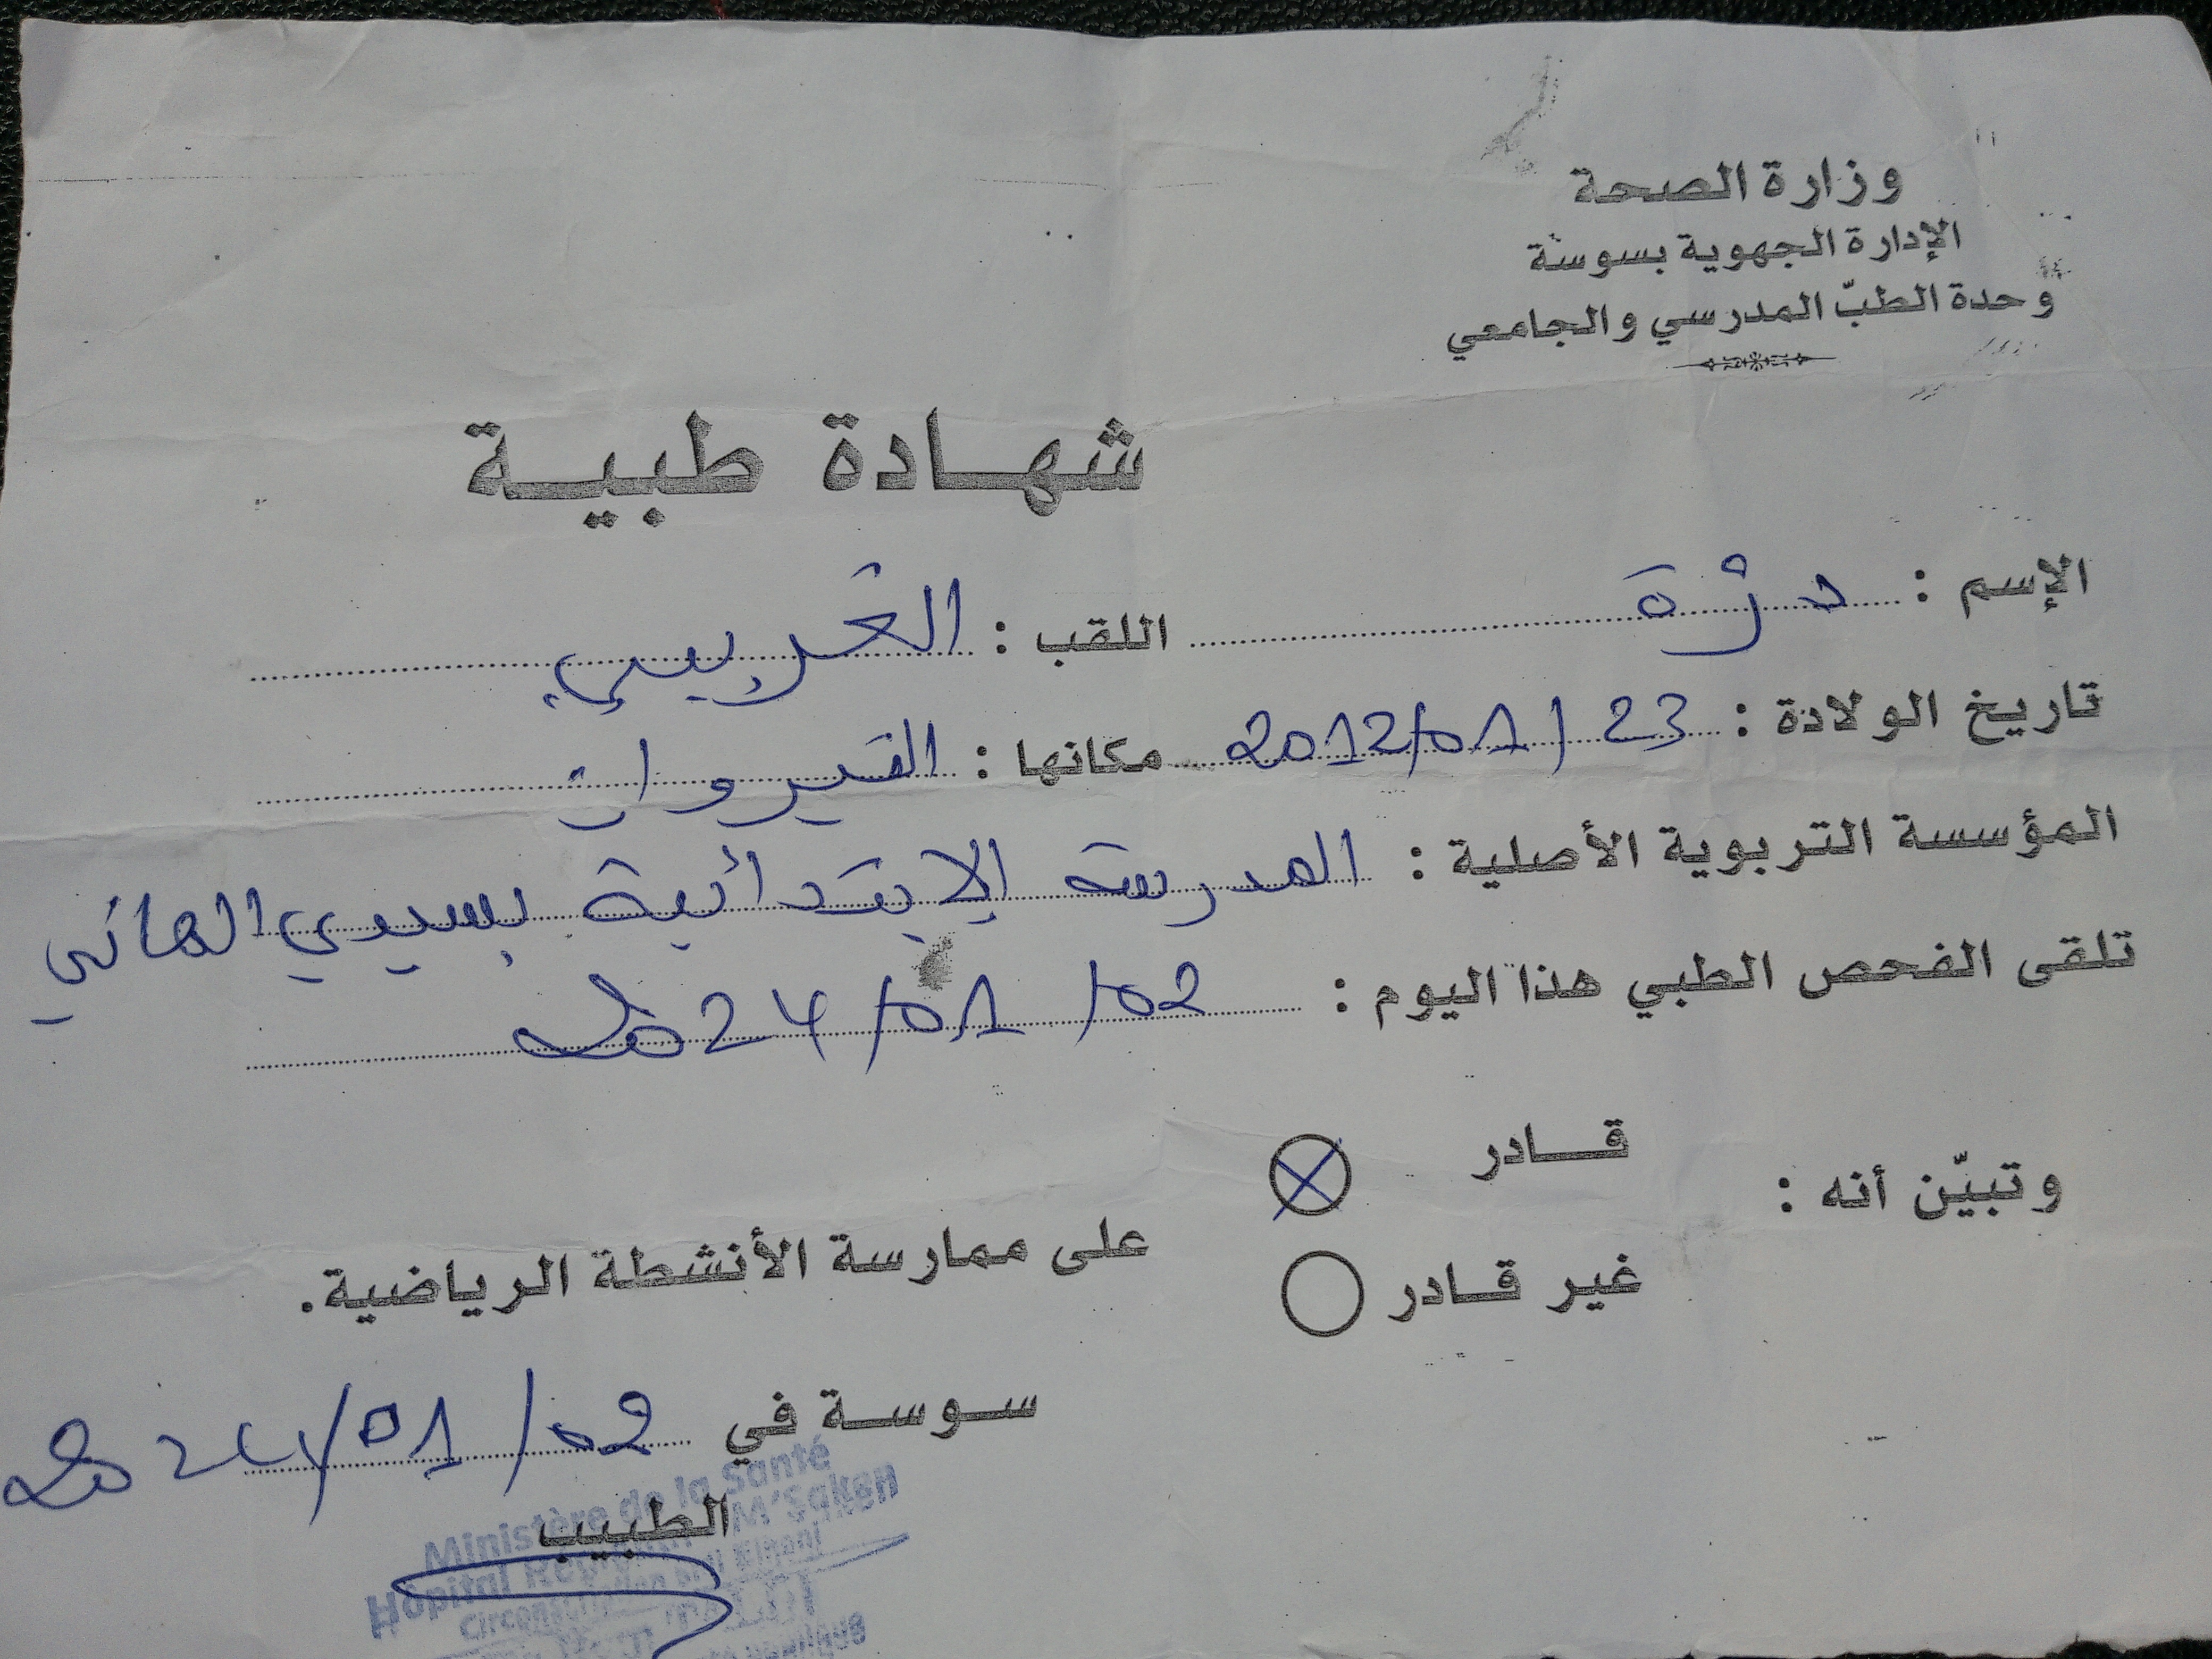 وزارة الصحة
الإدارة الجهوية بسوسة
وحدة الطبّ المدرسي والجامعي
شهادة طبية
الإسم : درّة اللقب : الغريبي
تاريخ الولادة : 23 / 01 / 2012 مكانها : القيروان
المؤسسة التربوية الأصلية : المدرسة الإبتدائية بسيدي الهاني
تلقى الفحص الطبي هذا اليوم : 02 / 01 / 2024
وتبيّن أنه : قادر
غير قادر
على ممارسة الأنشطة الرياضية.
سوسة في 02 / 01 / 2024
الطبيب
Ministère de la Santé
Hôpital M'Saken